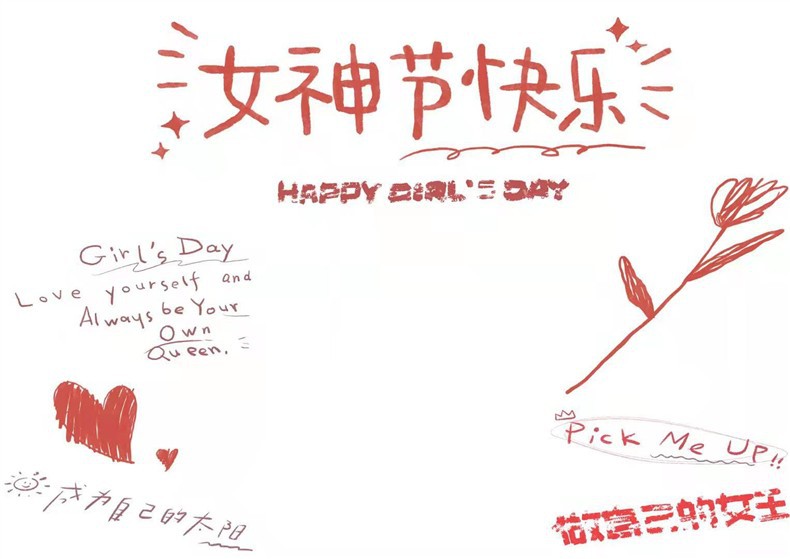 女神节快乐
HAPPY GIRL'S DAY
Girl's Day
Love yourself and
Always be Your
Own
Queen.
成为自己的太阳
Pick Me UP!!
做自己的女王